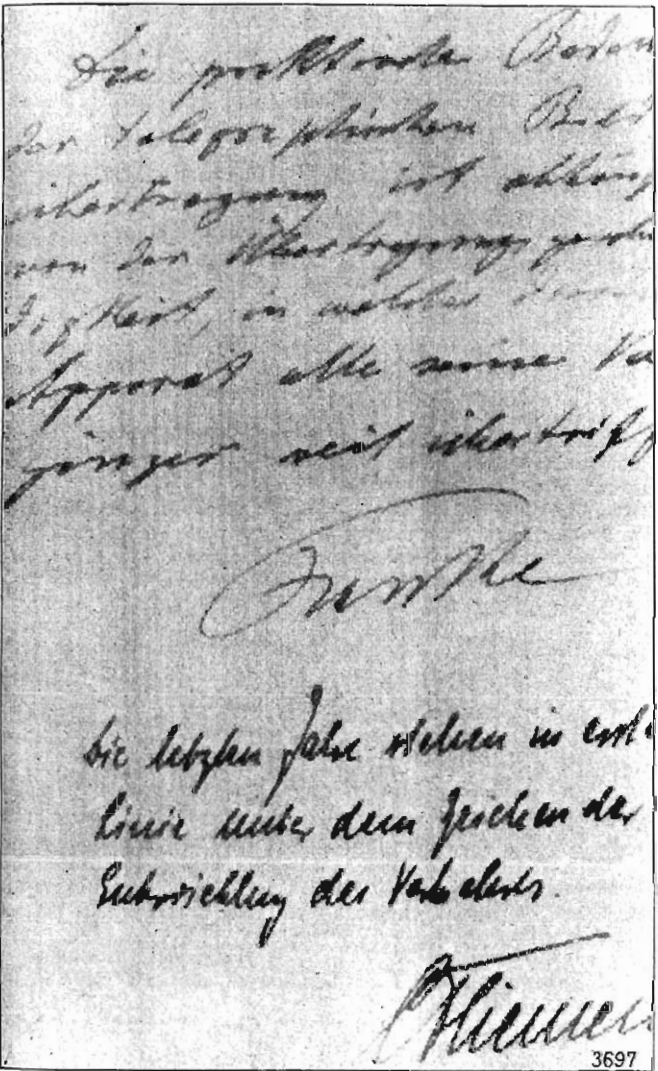 Die praktische Bedeu
der telegraphischen Bild
übertragung ist abhäng
von der Übertragungsgeschw
digkeit, in welcher dem
Apparat alle seine Vor
gänger weit übertriff
Funke
Die letzten Jahre stehen in erst
Linie unter dem Zeichen der
Entwicklung des Verkehrs.
3697